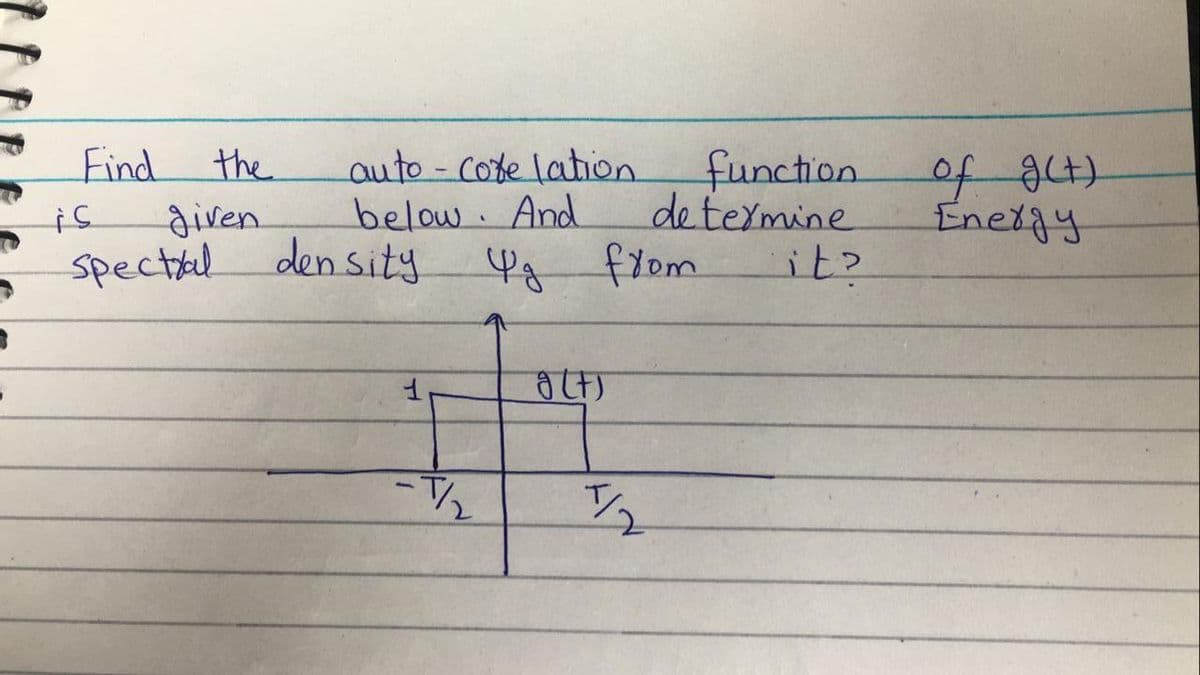 Find the auto - corelation function of g(t)
is given below. And determine Energy
spectral density Ψg from it?
1 g(t)
-T/2 T/2